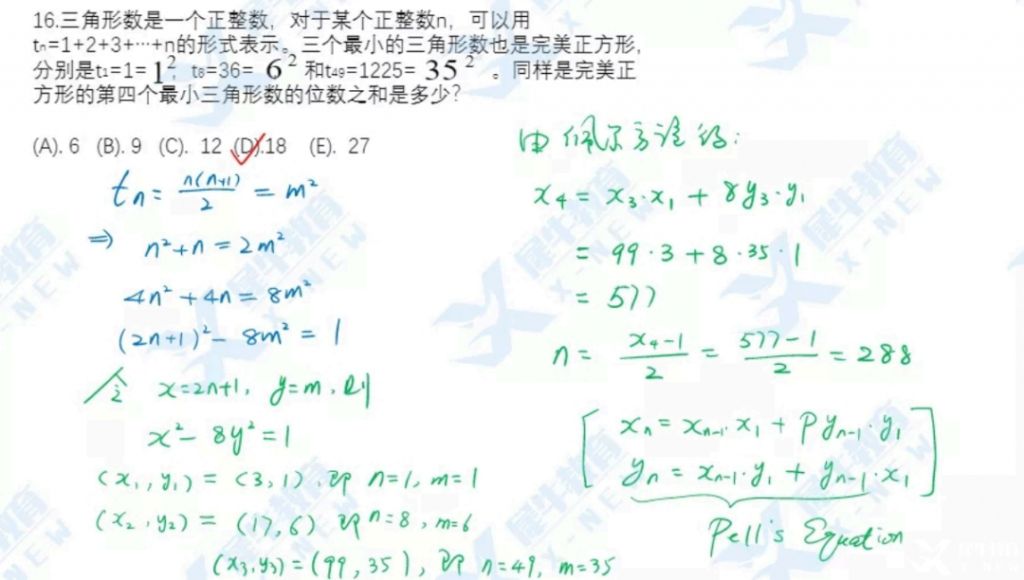 16.三角形数是一个正整数，对于某个正整数n，可以用
tₙ=1+2+3+…+n的形式表示。三个最小的三角形数也是完美正方形，
分别是t₁=1= 1²; t₈=36= 6² 和t₄₉=1225= 35² 。同样是完美正
方形的第四个最小三角形数的位数之和是多少？
(A). 6 (B). 9 (C). 12 (D).18 (E). 27
tₙ= n(n+1)/2 = m²
⇒ n²+n = 2m²
4n²+4n = 8m²
(2n+1)²- 8m² = 1
令 x=2n+1, y=m, 则
x²- 8y² = 1
(x₁,y₁) = (3,1) 即 n=1, m=1
(x₂,y₂) = (17,6) 即 n=8, m=6
(x₃,y₃)=(99,35), 即 n=49, m=35
由佩尔方程得:
x₄ = x₃·x₁ + 8y₃·y₁
= 99·3 + 8·35·1
= 577
n = (x₄-1)/2 = (577-1)/2 = 288
xₙ = xₙ₋₁·x₁ + Pyₙ₋₁·y₁
yₙ = xₙ₋₁·y₁ + yₙ₋₁·x₁
Pell's Equation
犀牛教育
X-NEW